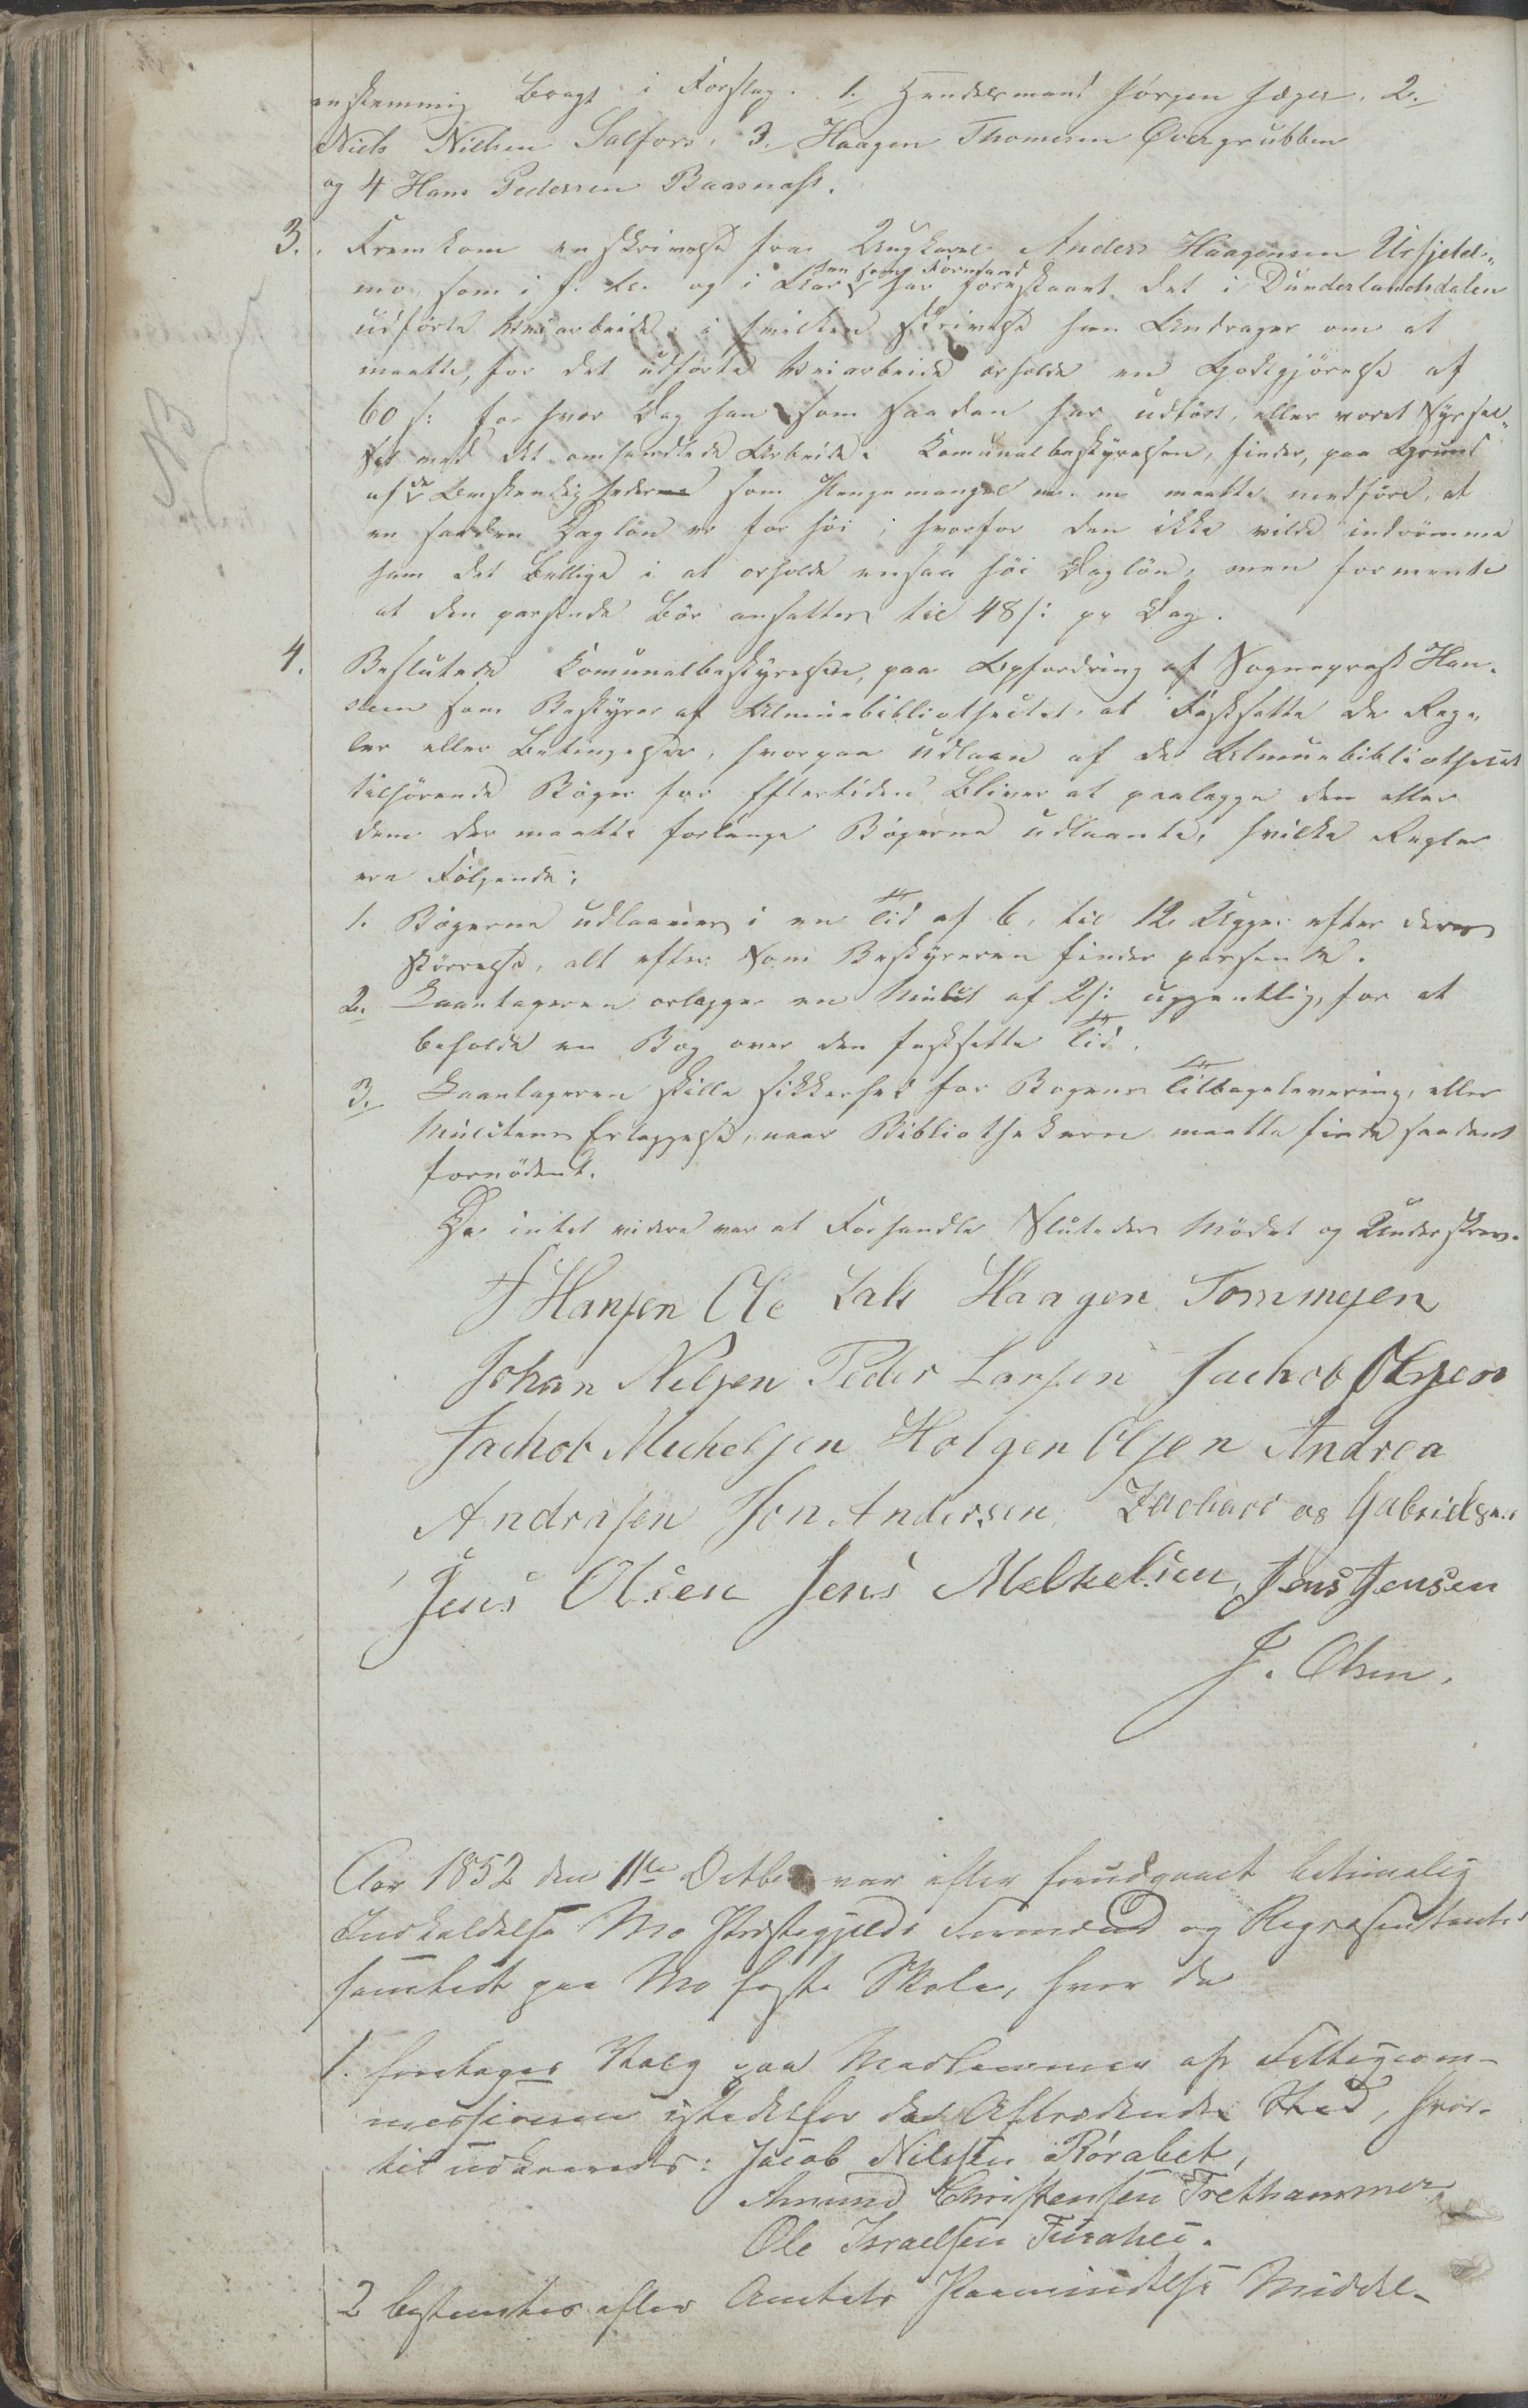 enstemmig Bragt i Forslag. 1. Handelsmand Jørgen Jæger, 2.
Niels Nielsen Salfors, 3. Haagen Thomesen Øvergrubben
og 4 Hans Pedersen Baasnæss.
3. Fremkom en skrivelse fra Ungkarl Anders Haagensen Urfjeld-
mo, som i f. A. og i Aar har forestaaet det i Dunderlandsdalen
som Formand
udførte Veiarbeide, i hvilken skrivelse han Andrager om at
maatte, for det udførte Veiarbeide erholde en Godtgjørelse af
60 s: for hver Dag han som saadan har udført, eller været Syssel-
sat med det omhandlede Arbeide. Komunalbestyrelsen, finder, paa Grund
af de Omstendigheder som Pengemangel m. m. maatte medføre, at
en saadan Dagløn er for høi; hvorfor den ikke vilde indrømme
ham det Billige i at erholde ensaa høi Dagløn, men formente
at den passende Bør ansættes til 48 s: pr Dag.
4. Beslutede Komunalbestyrelsen, paa Opfordring af Sogneprest Han-
sen som Bestyrer af Almuebibliothecket, at Fastsætte de Reg-
ler eller Betingelser, hvorpaa Udlaan af de Almuebibliothecet
tilhørende Bøger for Eftertiden Bliver at paalægge den eller
dem der maatte forlange Bøgerne udlaante, hvilke Regler
ere Følgende:
1. Bøgerne udlaanes i en Tid af 6, til 12 Uger efter deres
størrelse, alt efter som Bestyreren finder passende.
2. Laantageren erlægger en Mulct af 2 s: ugentlig, for at
beholde en Bog over den fastsatte Tid.
3. Laantageren stille sikkerhed for Bogens Tilbagelevering, eller
Mulctens Erlæggelse, naar Bibliothekeren maatte finde saadant
fornødent.
Da intet videre var at Forhandle Sluttedes Mødet og Underskrev.
F Hansen Ole Lals Haagen Tommesen
Johan Nilsen Peder Larsen Jachob Olsen
Jachob Michelsen Holgen Olsen Andrea
Andrasen Jon Andersen Zacharias Gabrielsen
Jens Olsen Jens Mekkelsen, Jens Jensen
J. Olsen.
Aar 1852 den 11te Octbr var efter forudgaaet betimelig
Indkaldelse Mo Præstegjelds Formænd og Repræsentanter
samlede paa Mo faste Skole, hvor da
1. foretages Valg paa Medlemmer af Fattigcom-
missionen istedetfor de Aftrædende Sted, hvor-
til udkaaredes: Jacob Nilssen Rørabet,
Amund Christensen Trethammer,
Ole Israelsen Furuhei.
2 bestemtes efter Amtets Paamindelse Middel-